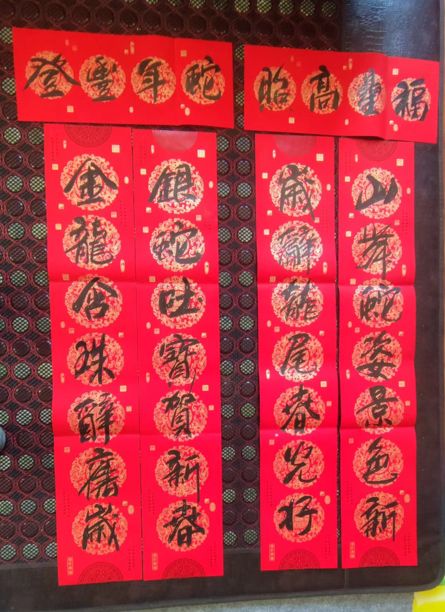 福星高照
山舞蛇姿景色新
歲辭龍尾春光好
蛇年豐登
銀蛇吐寶賀新春
金龍含珠辭舊歲